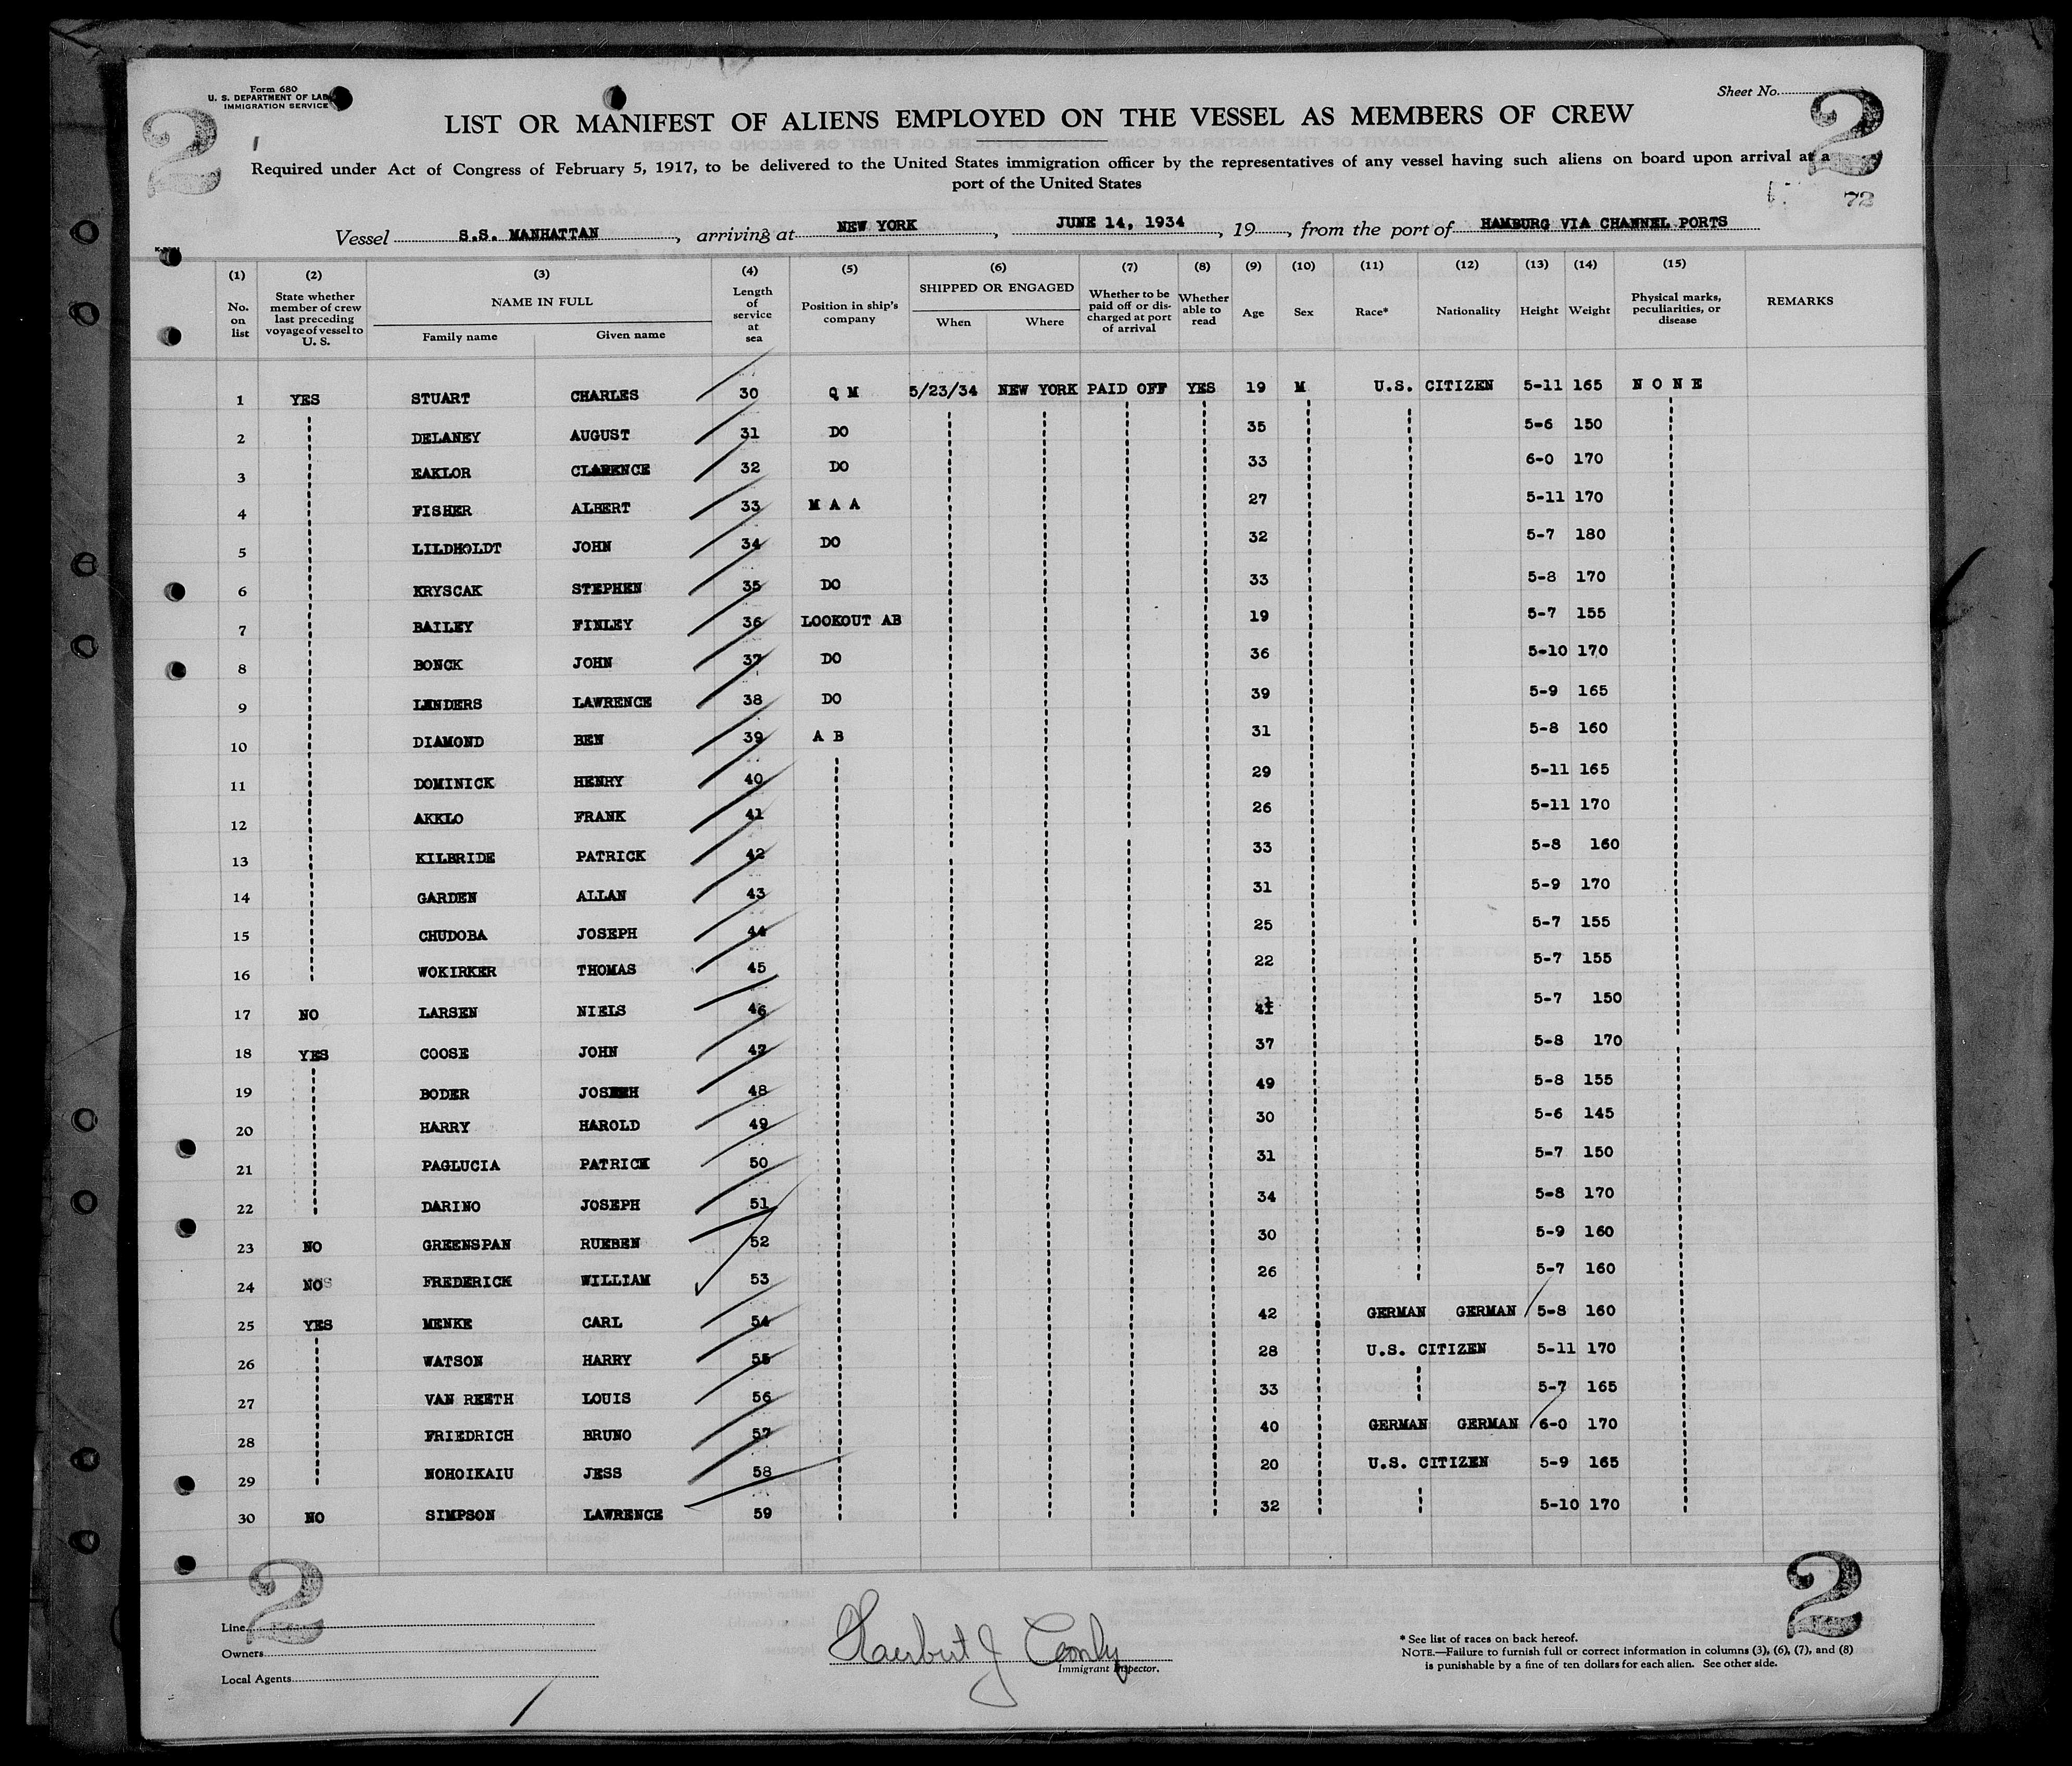 Form 680
U. S. DEPARTMENT OF LAB
IMMIGRATION SERVICE
Sheet No.
2 2
LIST OR MANIFEST OF ALIENS EMPLOYED ON THE VESSEL AS MEMBERS OF CREW
Required under Act of Congress of February 5, 1917, to be delivered to the United States immigration officer by the representatives of any vessel having such aliens on board upon arrival at a
port of the United States
72
Vessel S.S. MANHATTAN, arriving at NEW YORK, JUNE 14, 1934, 19, from the port of HAMBURG VIA CHANNEL PORTS
(1) (2) (3) (4) (5) (6) (7) (8) (9) (10) (11) (12) (13) (14) (15)
No. on list State whether member of crew last preceding voyage of vessel to U. S. NAME IN FULL Length of service at sea Position in ship's company SHIPPED OR ENGAGED Whether to be paid off or discharged at port of arrival Whether able to read Age Sex Race* Nationality Height Weight Physical marks, peculiarities, or disease REMARKS
Family name Given name When Where
1 YES STUART CHARLES 30 Q M 5/23/34 NEW YORK PAID OFF YES 19 M U.S. CITIZEN 5-11 165 N O N E
2 DELANEY AUGUST 31 DO 35 5-6 150
3 EAKLOR CLARENCE 32 DO 33 6-0 170
4 FISHER ALBERT 33 M A A 27 5-11 170
5 LILDHOLDT JOHN 34 DO 32 5-7 180
6 KRYSCAK STEPHEN 35 DO 33 5-8 170
7 BAILEY FINLEY 36 LOOKOUT AB 19 5-7 155
8 BONCK JOHN 37 DO 36 5-10 170
9 LANDERS LAWRENCE 38 DO 39 5-9 165
10 DIAMOND BEN 39 A B 31 5-8 160
11 DOMINICK HENRY 40 29 5-11 165
12 AKKLO FRANK 41 26 5-11 170
13 KILBRIDE PATRICK 42 33 5-8 160
14 GARDEN ALLAN 43 31 5-9 170
15 CHUDOBA JOSEPH 44 25 5-7 155
16 WOKIRKER THOMAS 45 22 5-7 155
17 NO LARSEN NIELS 46 41 5-7 150
18 YES COOSE JOHN 47 37 5-8 170
19 BODER JOSEPH 48 49 5-8 155
20 HARRY HAROLD 49 30 5-6 145
21 PAGLUCIA PATRICK 50 31 5-7 150
22 DARINO JOSEPH 51 34 5-8 170
23 NO GREENSPAN RUEBEN 52 30 5-9 160
24 NO FREDERICK WILLIAM 53 26 5-7 160
25 YES MENKE CARL 54 42 GERMAN GERMAN 5-8 160
26 WATSON HARRY 55 28 U.S. CITIZEN 5-11 170
27 VAN REETH LOUIS 56 33 5-7 165
28 FRIEDRICH BRUNO 57 40 GERMAN GERMAN 6-0 170
29 NOHOIKAIU JESS 58 20 U.S. CITIZEN 5-9 165
30 NO SIMPSON LAWRENCE 59 32 5-10 170
2 2
Line
Owners
Local Agents
Immigrant Inspector.
* See list of races on back hereof.
NOTE.—Failure to furnish full or correct information in columns (3), (6), (7), and (8)
is punishable by a fine of ten dollars for each alien. See other side.